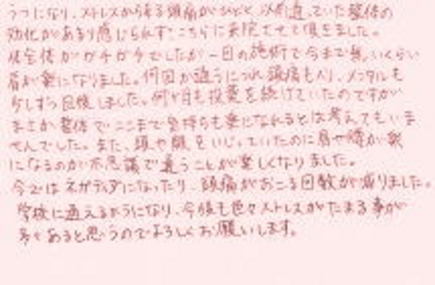 うつになり、ストレスから来る頭痛がひどく、以前通っていた整体の
効化があまり感じられずこちらに来院させて頂きました。
体全体がガチガチでしたが一日の施術で今まで無いくらい
肩が楽になりました。何回か通うにつれ頭痛も減り、メンタルも
少しずつ回復しました。何ヶ月も投薬を続けていたのですが
まさか整体でここまで気持ちも楽になれるとは考えてもいま
せんでした。また、頭や顔をいじっていたのに肩や腰が楽
になるのが不思議で通うことが楽しくなりました。
今ではネガティブになったり、頭痛がおこる回数が減りました。
学校に通えるようになり、今後も色々ストレスがたまる事が
多々あると思うのでよろしくお願いします。